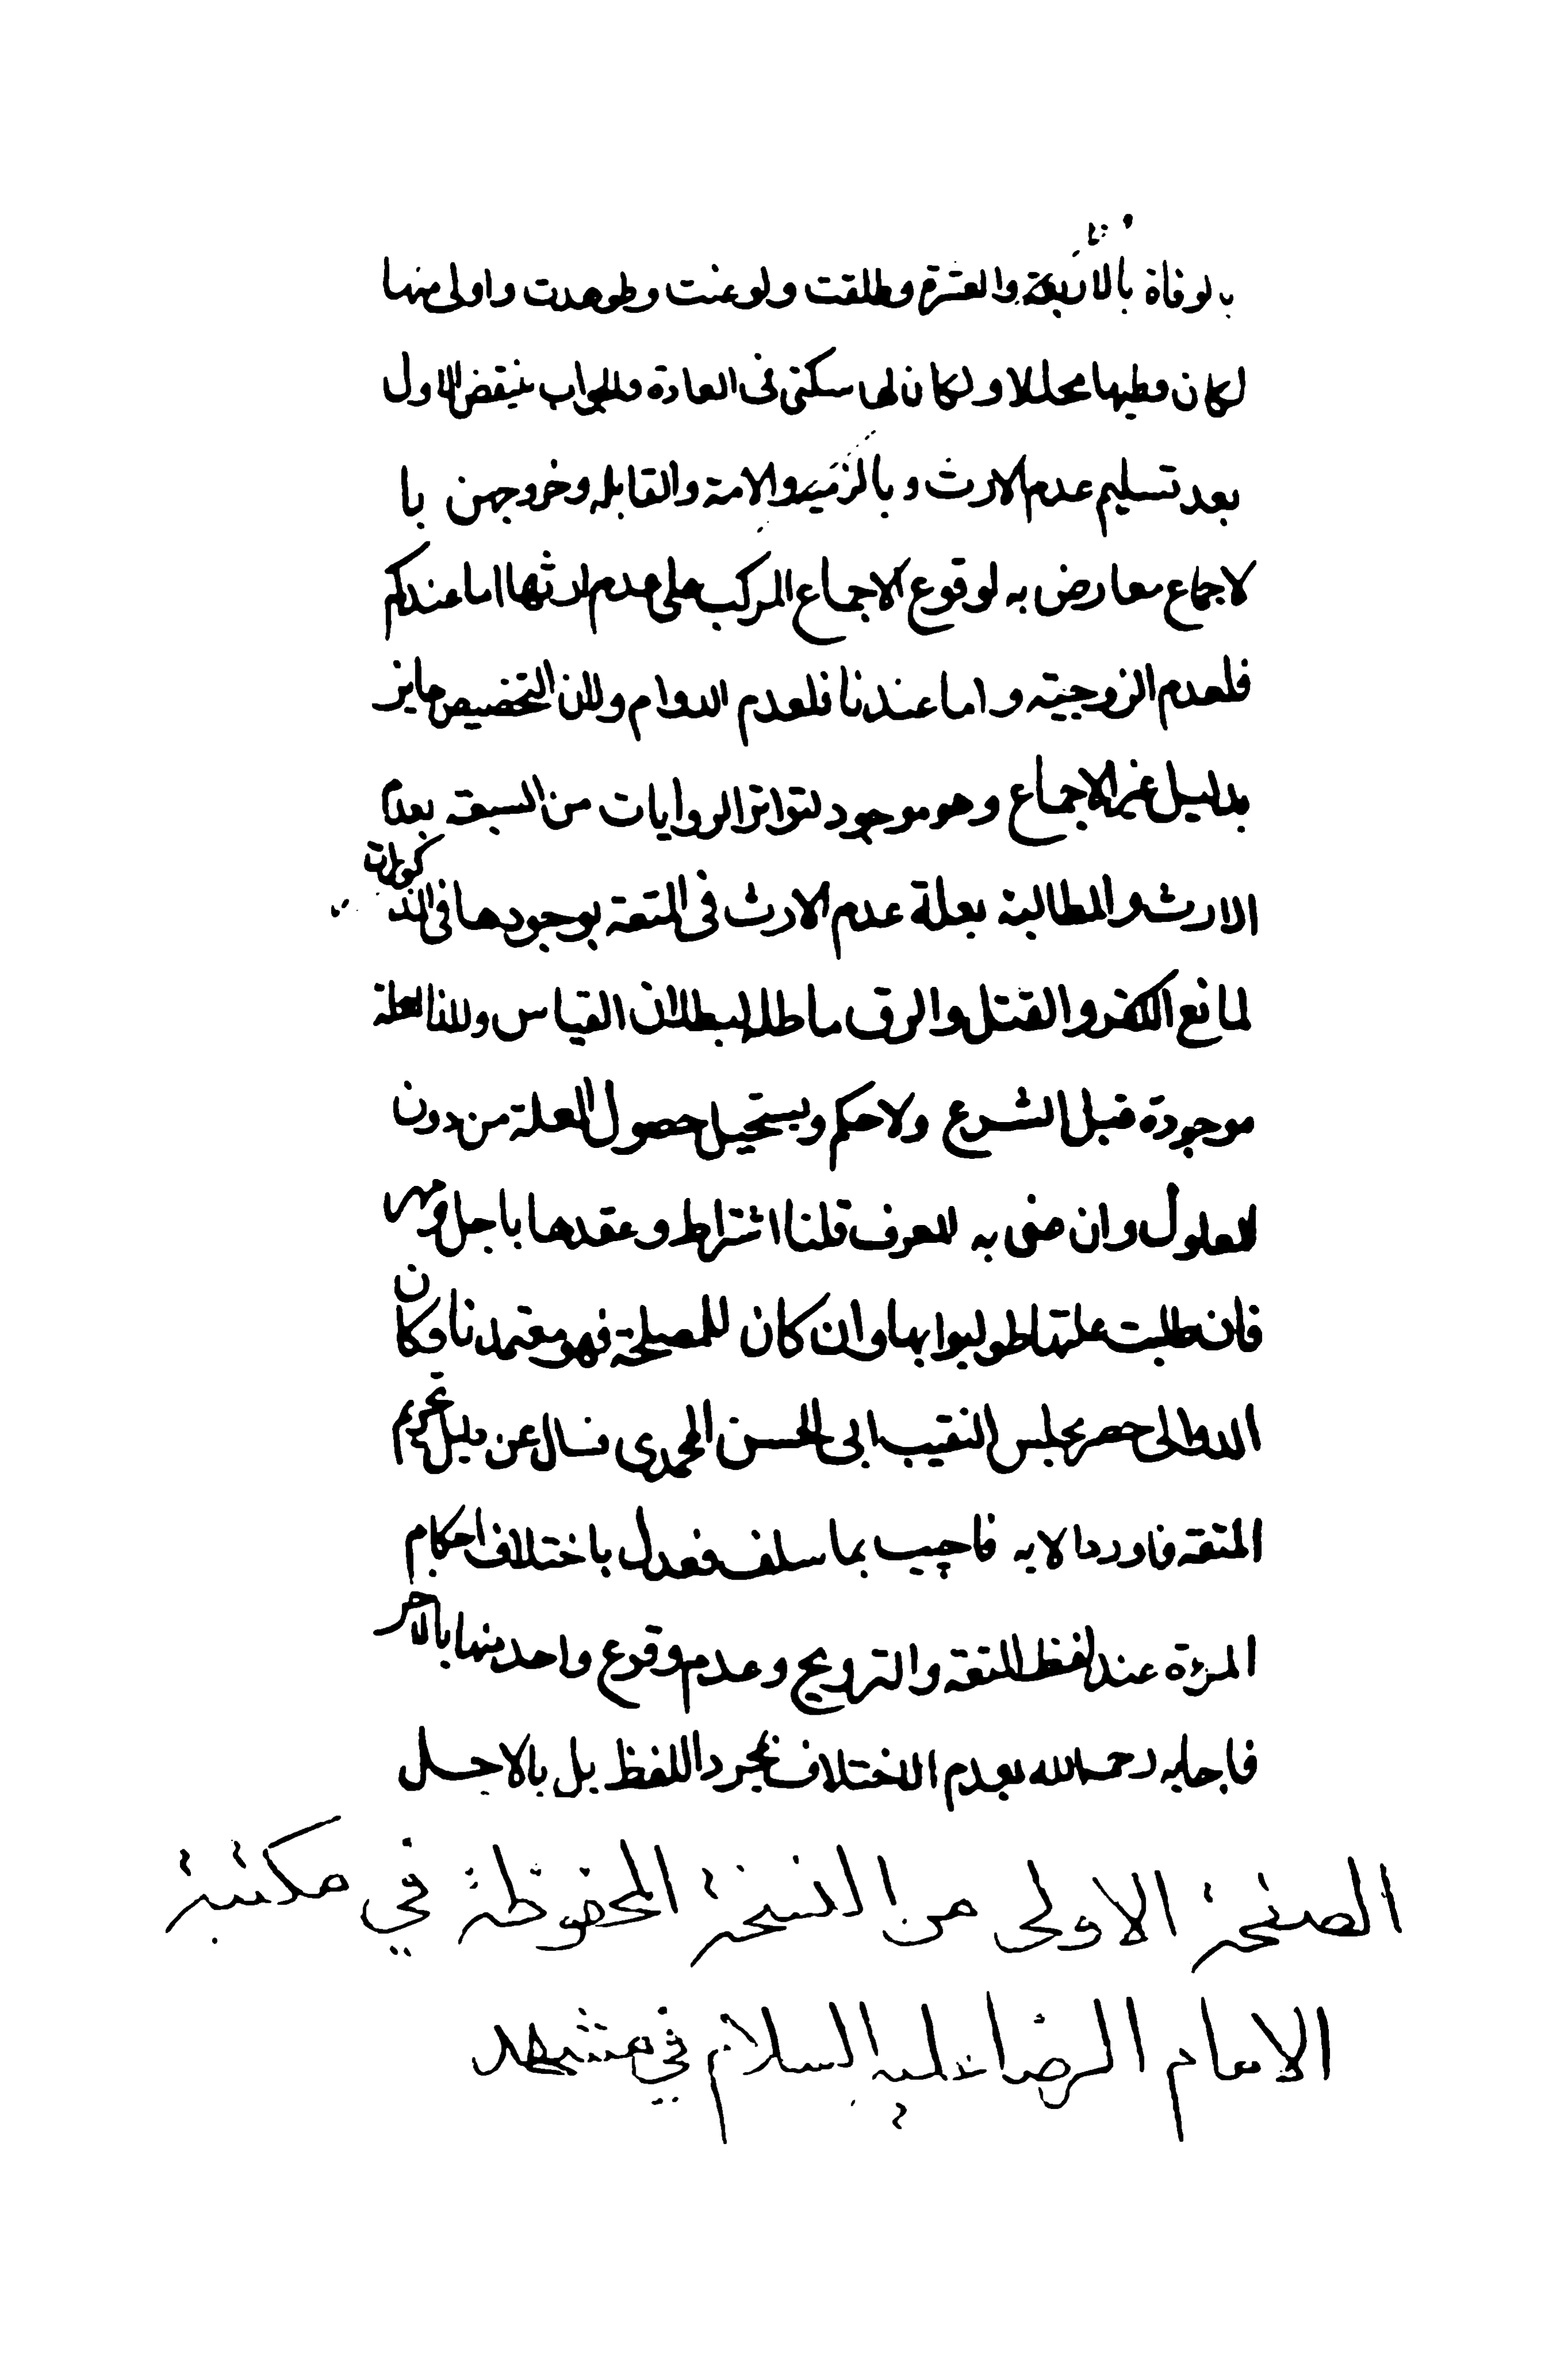 بالوفاة بالاربعة والعشرة وطلقت ولوعنت وظوهرت واولى منها
لكان وطيها محللا ولكان لها سكنى فى العادة والجواب ينتقض الاول
بعد تسليم عدم الارث وبالذمية والامة والقاتله وخروجهن با
لاجماع معارض به لوقوع الاجماع المركب على عدم ارثها اما عندكم
فلعدم الزوجيته واما عندنا فلعدم الدوام ولان التخصيص جايز
بدليل غير الاجماع وهو موجود لتواتر الروايات من الشيعة بعدم
الارث والمطالبة بعلة عدم الارث فى المتعة بوجودها فى
لمانع الكفر والقتل والرق باطل لبطلان القياس ولان العلة
موجودة قبل الشرع ولا حكم ويستحيل حصول العلة من دون
المعلول وان عنى به المعرف قلنا اشتراط عقدها باجل
فان طلبت علتها طولبوا بها وان كان للمصلحة فهو معتمدنا وكان
حضر مجلس النقيب ابى الحسن المحمدى فسال عن دليل تحريم
المتعة فاورد الايه فاجيب بما سلف فعدل باختلاف احكام
المرءة عند لفظ المتعة والتزويج وعدم وقوع واحد منها بالاخر
فاجابه رحمه الله بعدم الاختلاف بمجرد اللفظ بل بالاجل
الصفحة الاولى من النسخة المحفوظة في مكتبة
الامام الرضا عليه السلام في مشهد